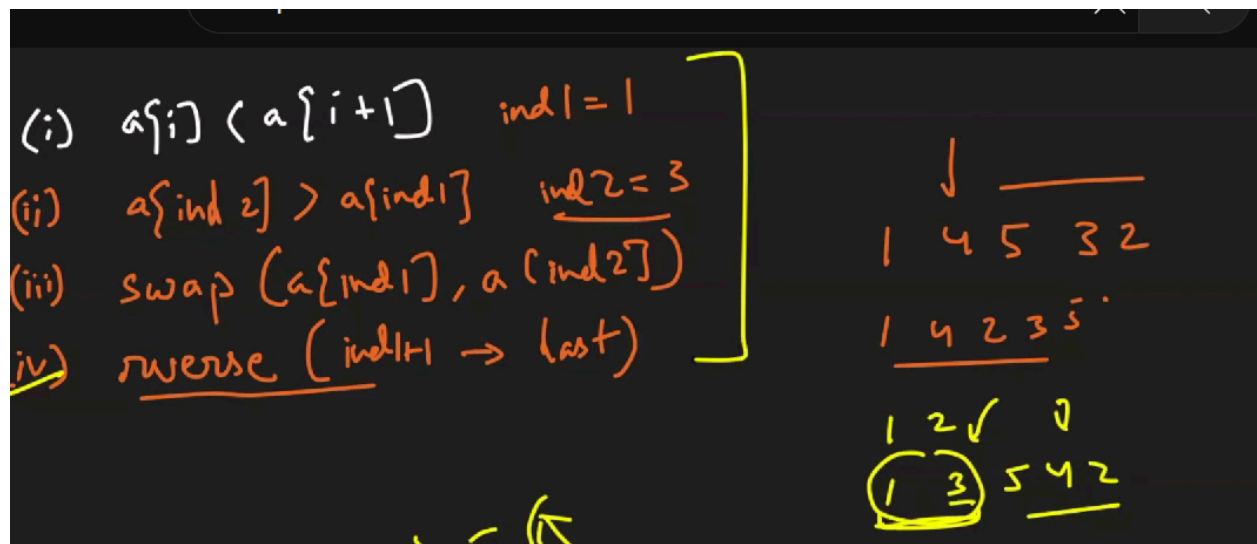 (i) a[i] < a[i+1] ind1 = 1
(ii) a[ind 2] > a[ind1] ind2 = 3
(iii) swap (a[ind1], a[ind2])
(iv) reverse (ind1+1 → last)
1 4 5 3 2
1 4 2 3 5
1 2
1 3 5 4 2